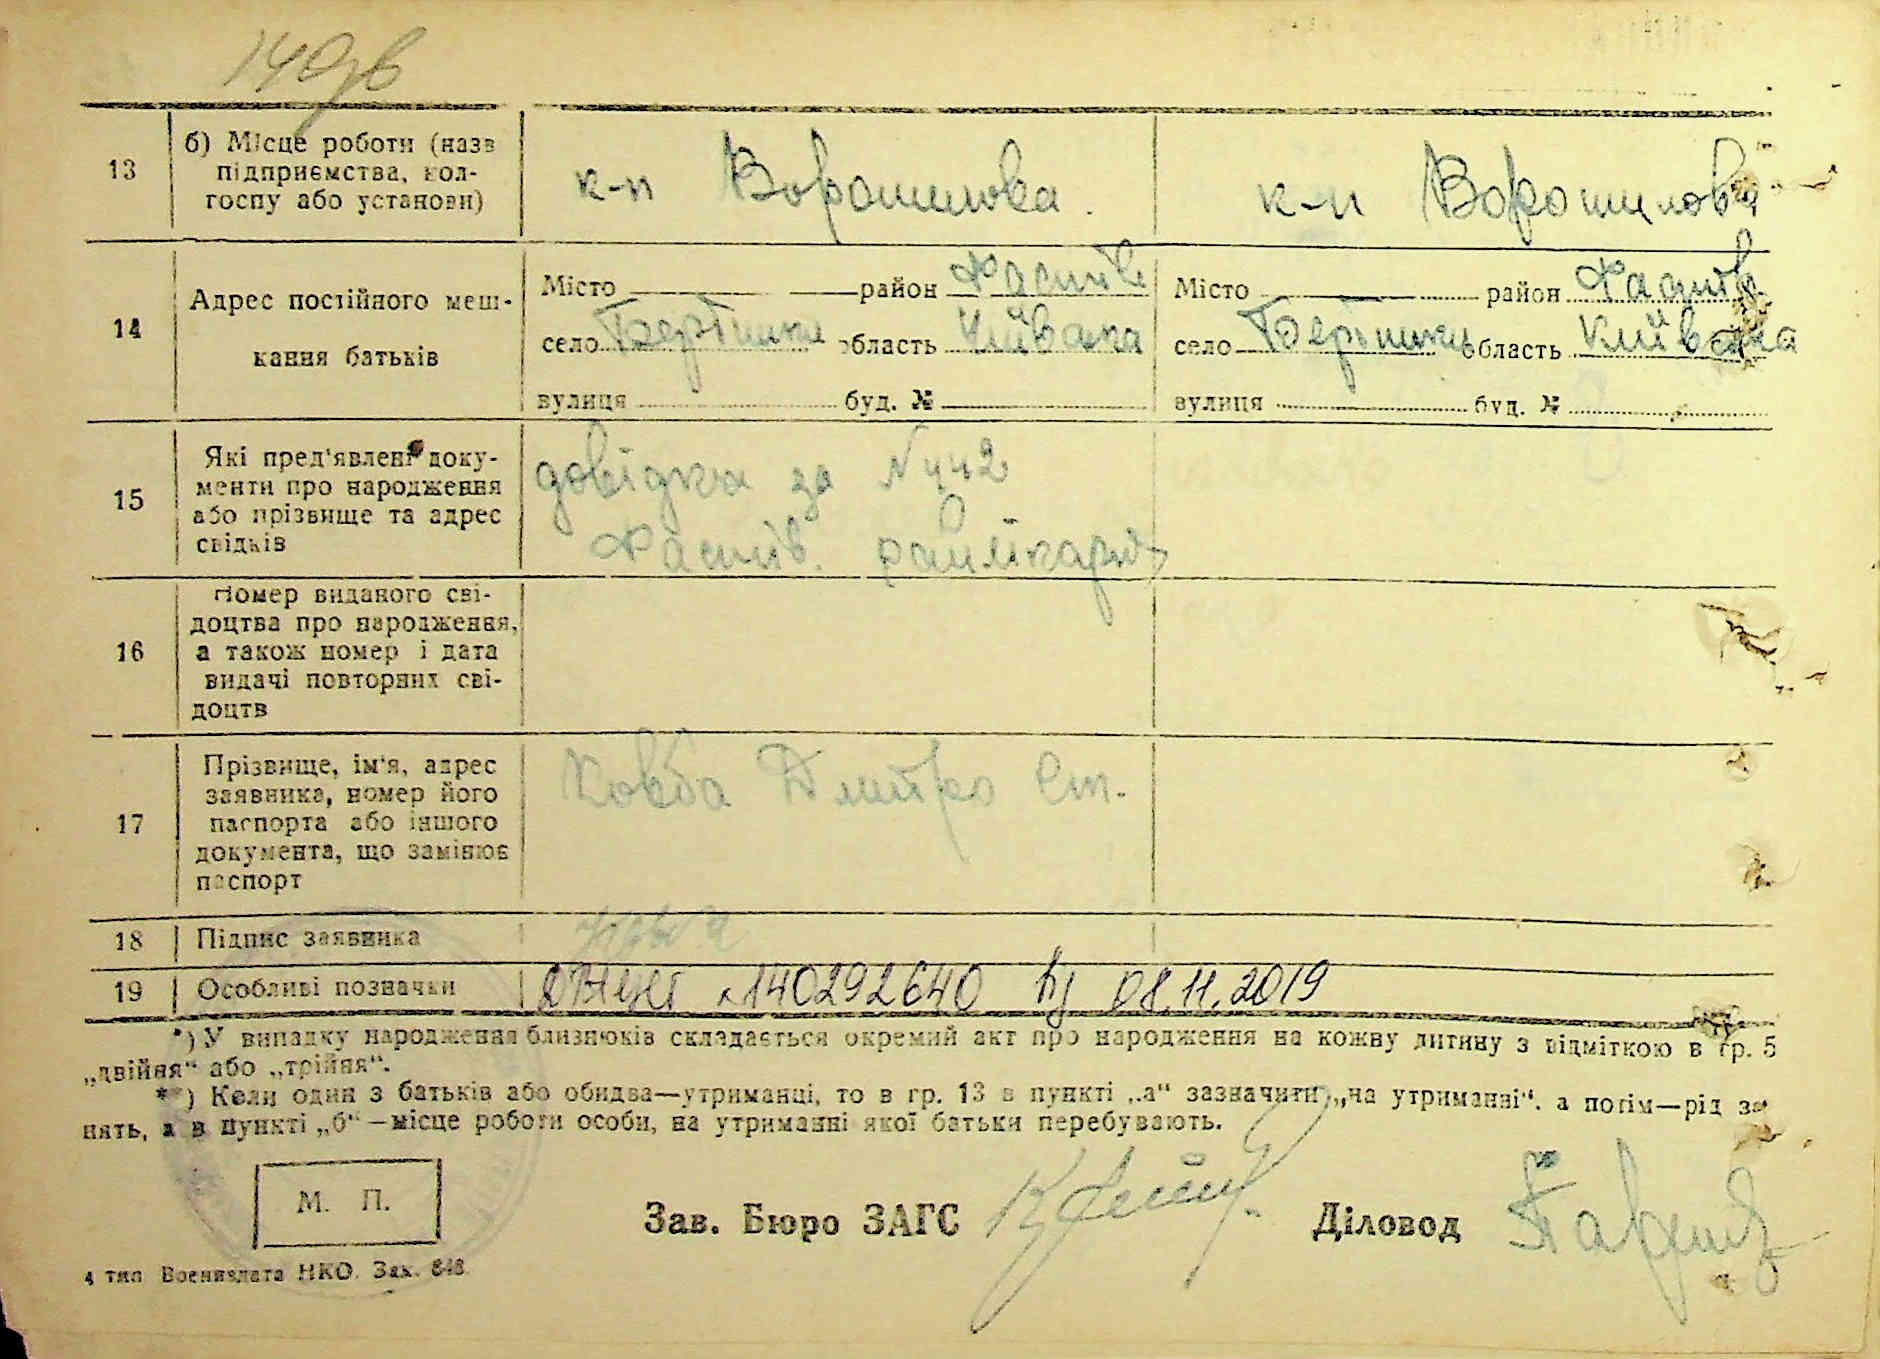 140зв
13
б) Місце роботи (назв
підприємства, кол-
госпу або установи)
к-п Ворошилова.
к-п Ворошилова
14
Адрес постійного меш-
кання батьків
Місто район Фастів
село область Київська
вулиця буд. №
Місто район Фастів
село область Київська
вулиця буд. №
15
Які пред'явлені доку-
менти про народження
або прізвище та адрес
свідків
довідка за №
Фастів.
16
Номер виданого сві-
доцтва про народження,
а також номер і дата
видачі повторних сві-
доцтв
17
Прізвище, ім'я, адрес
заявника, номер його
паспорта або іншого
документа, що замінює
паспорт
Ковба Дмитро Ст.
18
Підпис заявника
19
Особливі позначки
140292640 08.11.2019
*) У випадку народження близнюків складається окремий акт про народження на кожну дитину з відміткою в гр. 5
„двійня“ або „трійня“.
**) Коли один з батьків або обидва—утриманці, то в гр. 13 в пункті „а“ зазначити „на утриманні“. а потім—рід за-
нять, а в пункті „б“—місце роботи особи, на утриманні якої батьки перебувають.
М. П.
Зав. Бюро ЗАГС
Діловод
4 тип Воениздата НКО. Зак. 648.